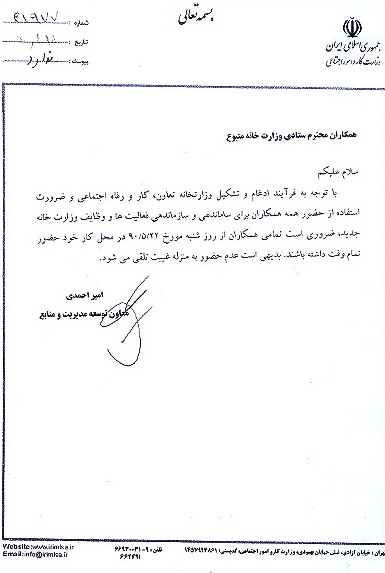 بسمه تعالی
جمهوری اسلامی ایران
وزارت کار و امور اجتماعی
شماره: ۴۱۹۷۷
تاریخ:
پیوست: ندارد
همکاران محترم ستادی وزارت خانه متبوع
سلام علیکم
با توجه به فرآیند ادغام و تشکیل وزارتخانه تعاون، کار و رفاه اجتماعی و ضرورت
استفاده از حضور همه همکاران برای ساماندهی و سازماندهی فعالیت ها و وظایف وزارت خانه
جدید، ضروری است تمامی همکاران از روز شنبه مورخ ۹۰/۵/۲۲ در محل کار خود حضور
تمام وقت داشته باشند. بدیهی است عدم حضور به منزله غیبت تلقی می شود.
امیر احمدی
معاون توسعه مدیریت و منابع
تهران: خیابان آزادی، نبش خیابان بهبودی، وزارت کار و امور اجتماعی، کدپستی: ۱۴۵۷۹۹۴۸۶۱ تلفن: ۹-۶۶۹۳۰۰۳۱
Website:www.irimlsa.ir
Email:info@irimlsa.ir